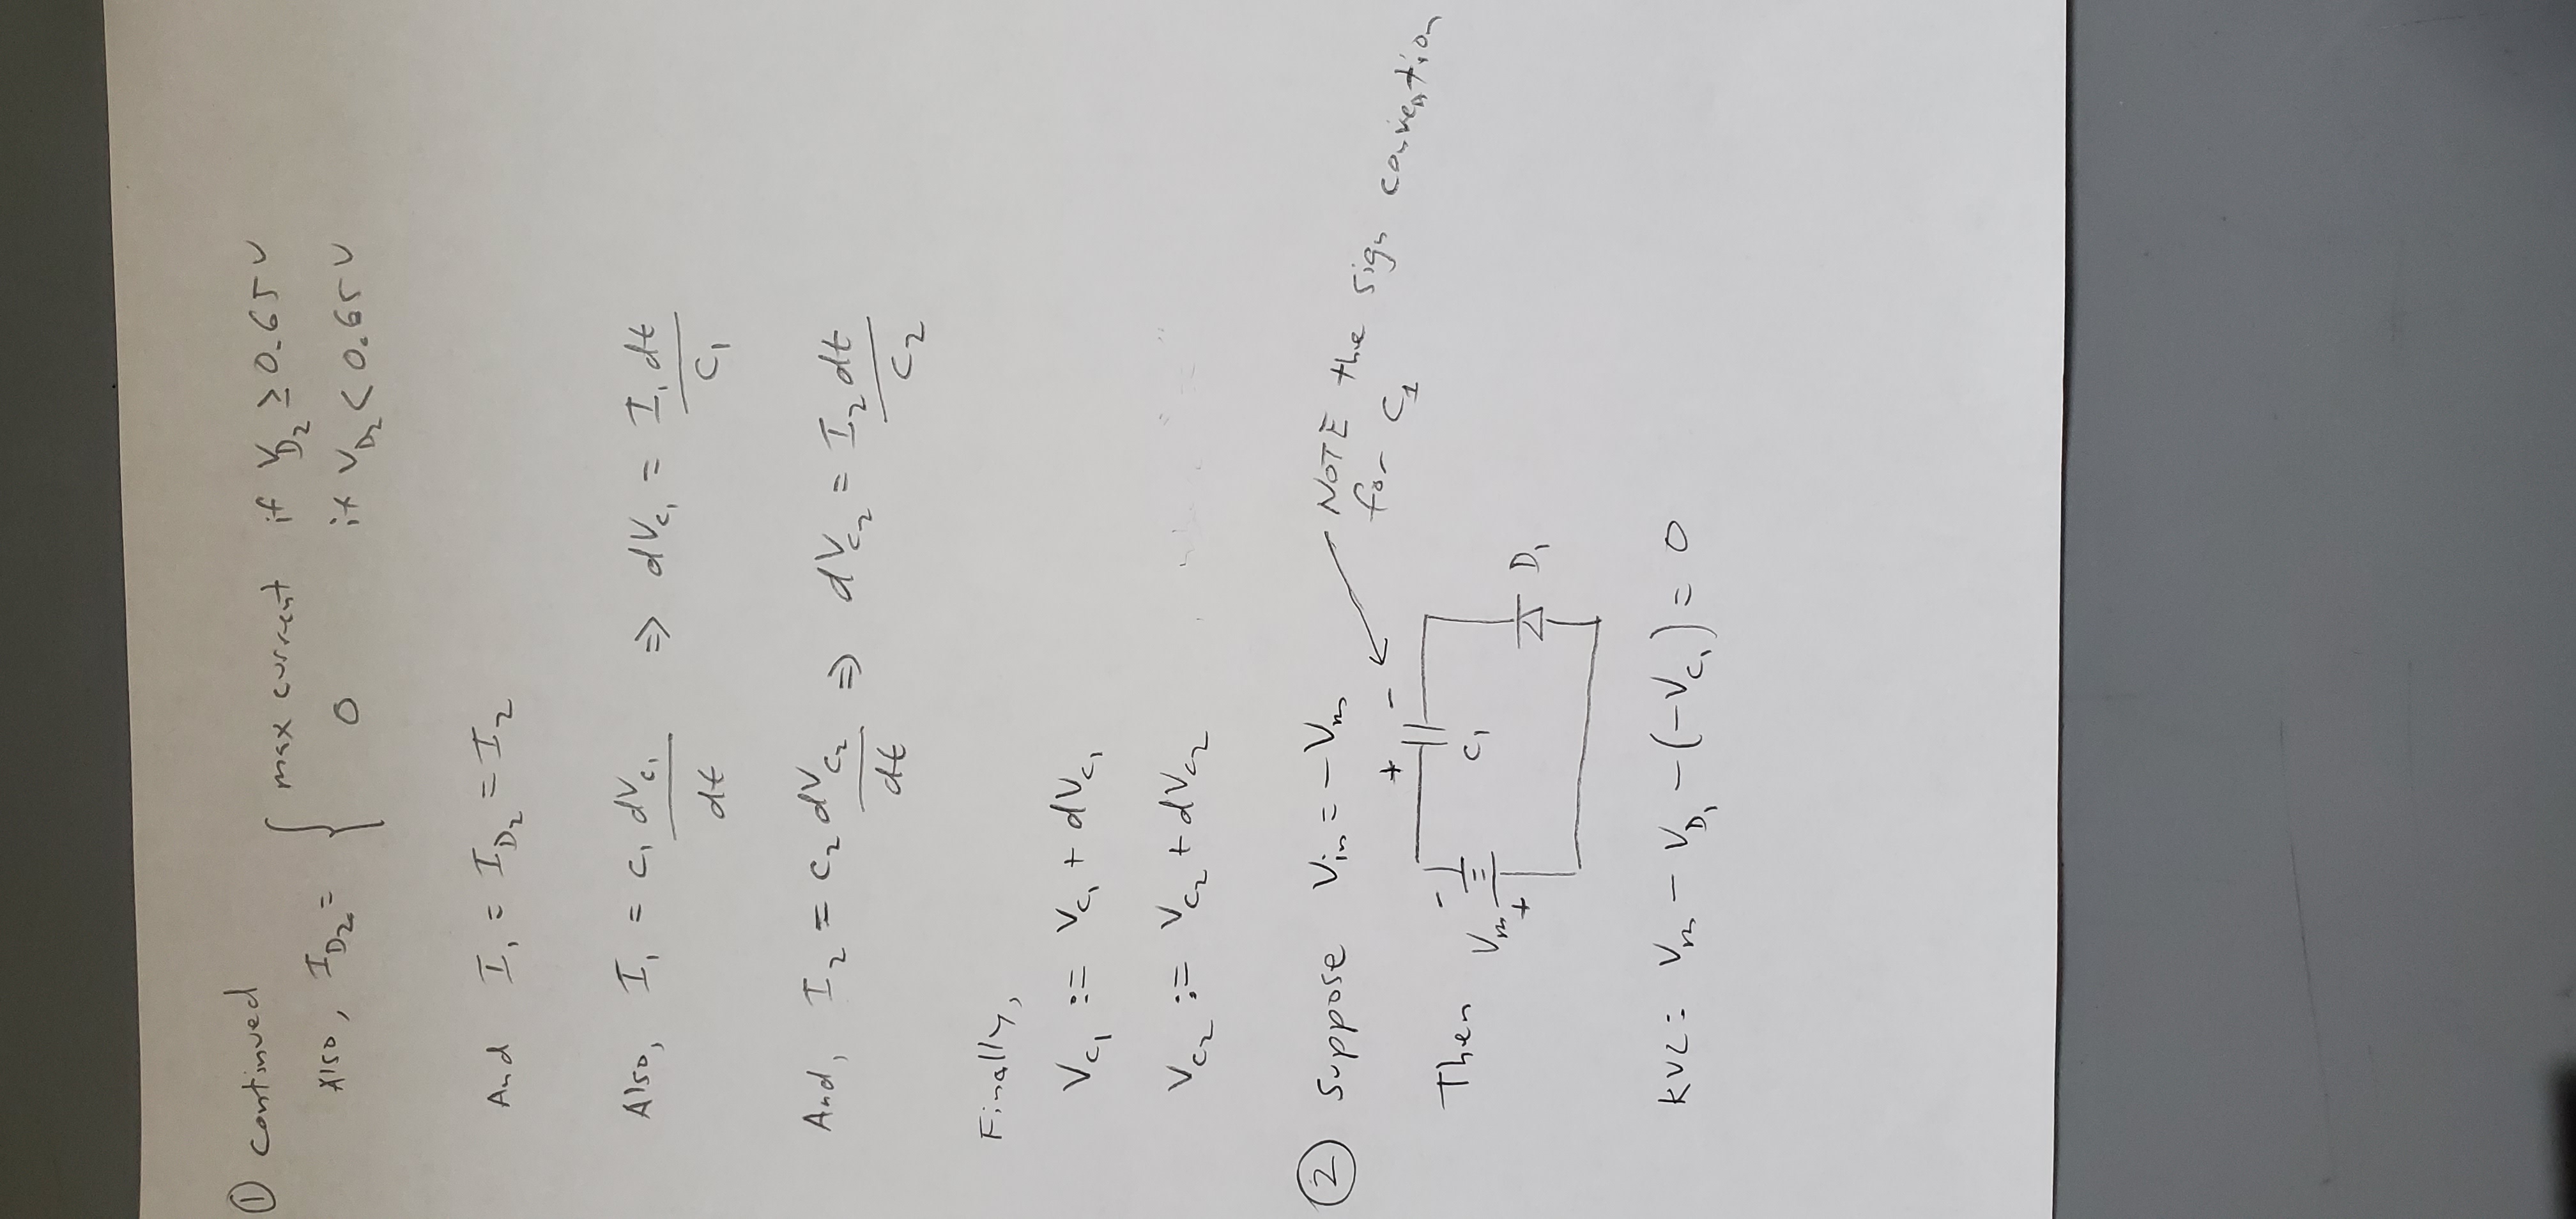 ① continued
Also, I_D₂ = { max current if V_D₂ ≥ 0.65 V
0 if V_D₂ < 0.65 V
And I₁ = I_D₂ = I₂
Also, I₁ = C₁ dV_C₁/dt ⇒ dV_C₁ = I₁ dt/C₁
And, I₂ = C₂ dV_C₂/dt ⇒ dV_C₂ = I₂ dt/C₂
Finally,
V_C₁ := V_C₁ + dV_C₁
V_C₂ := V_C₂ + dV_C₂
② Suppose V_in = -V_m
NOTE the sign convention
for C₁
+ -
Then
-
V_m
+
C₁
D₁
KVL: V_m - V_D₁ - (-V_C₁) = 0